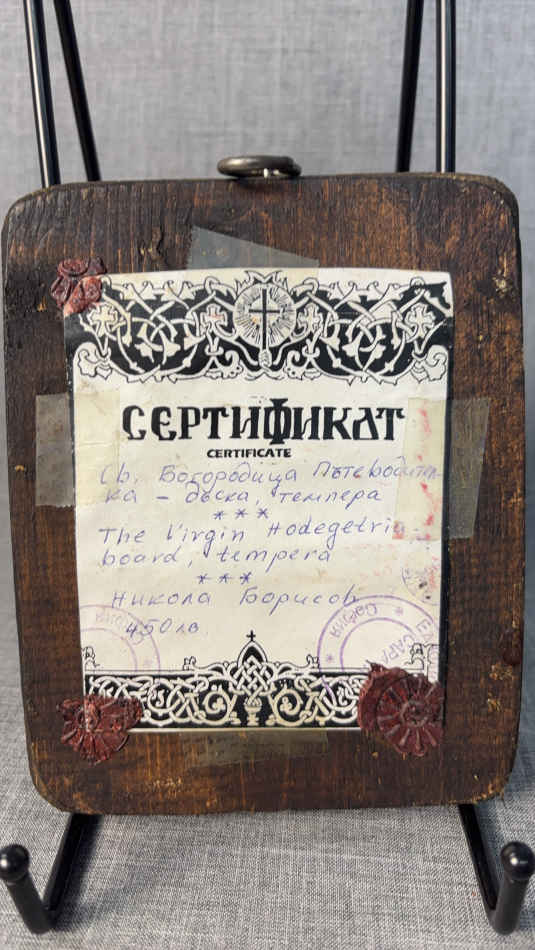 СЕРТИФИКАТ
CERTIFICATE
Св. Богородица Пътеводител-
ка - дъска, темпера
***
The Virgin Hodegetria -
board, tempera
***
Никола Борисов
450 лв.
София
София